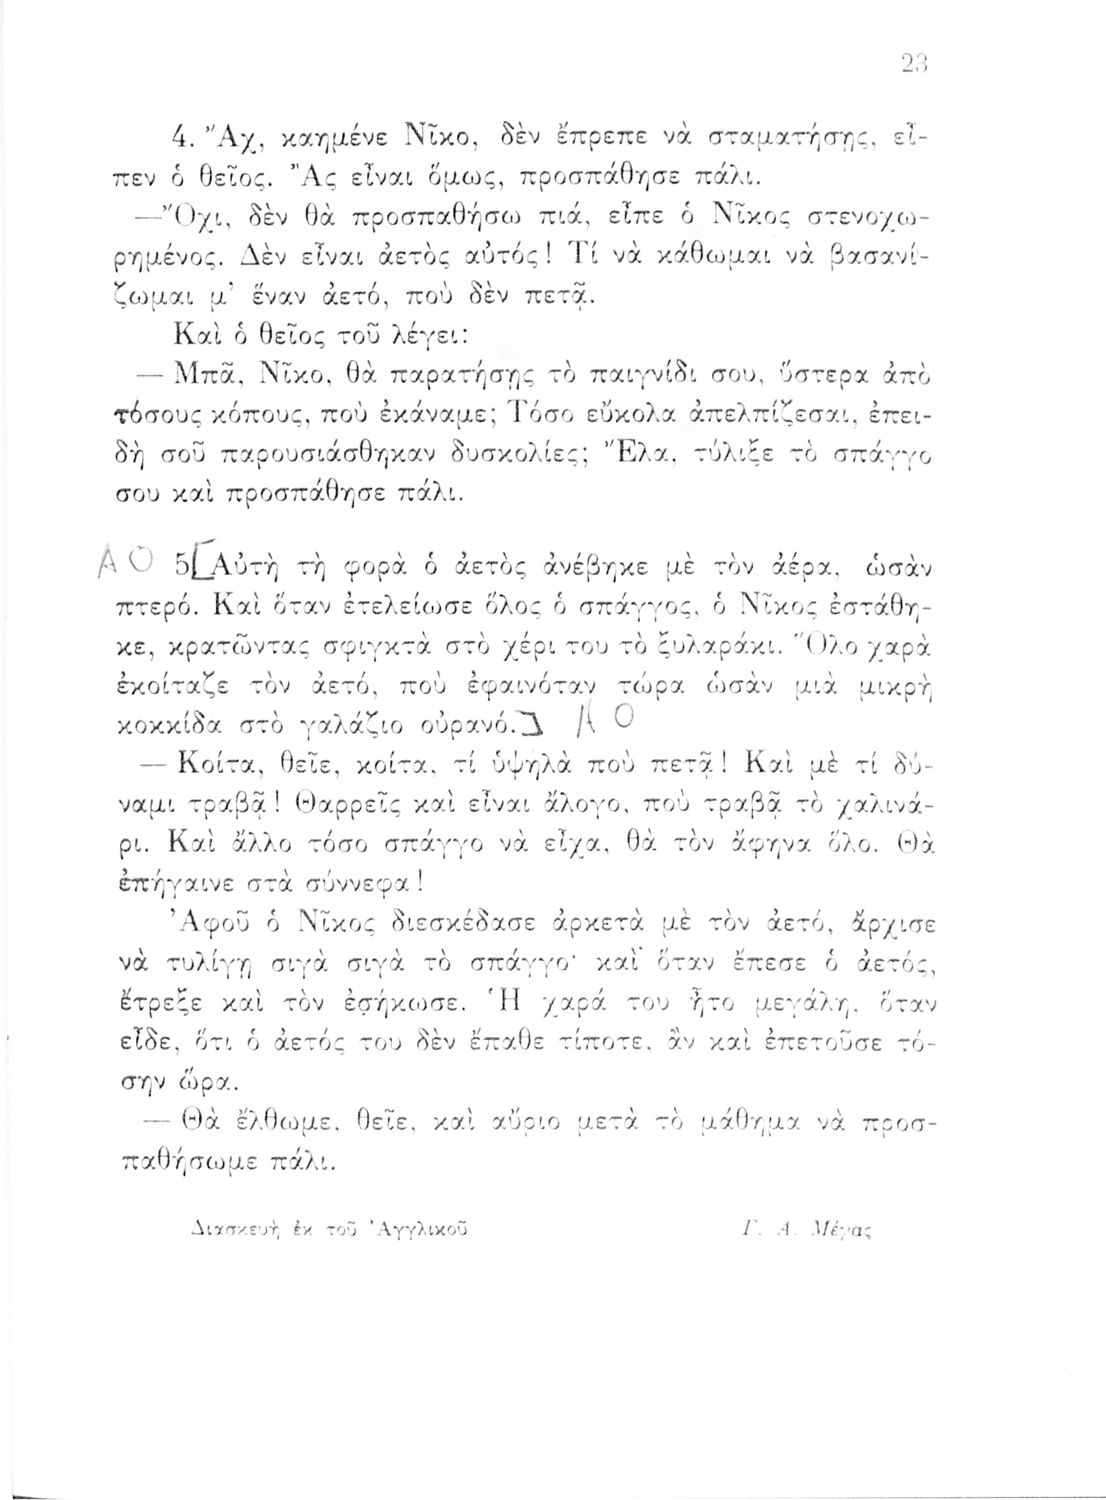 23
4. Ἄχ, καημένε Νῖκο, δὲν ἔπρεπε νὰ σταματήσῃς, εἶ-
πεν ὁ θεῖος. Ἂς εἶναι ὅμως, προσπάθησε πάλι.
—Ὄχι, δὲν θὰ προσπαθήσω πιά, εἶπε ὁ Νῖκος στενοχω-
ρημένος. Δὲν εἶναι ἀετὸς αὐτός! Τί νὰ κάθωμαι νὰ βασανί-
ζωμαι μ᾿ ἕναν ἀετό, ποὺ δὲν πετᾷ.
Καὶ ὁ θεῖος τοῦ λέγει:
— Μπᾶ, Νῖκο, θὰ παρατήσῃς τὸ παιγνίδι σου, ὕστερα ἀπὸ
τόσους κόπους, ποὺ ἐκάναμε; Τόσο εὔκολα ἀπελπίζεσαι, ἐπει-
δὴ σοῦ παρουσιάσθηκαν δυσκολίες; Ἔλα, τύλιξε τὸ σπάγγο
σου καὶ προσπάθησε πάλι.
Α Ο 5[Αὐτὴ τὴ φορὰ ὁ ἀετὸς ἀνέβηκε μὲ τὸν ἀέρα, ὡσὰν
πτερό. Καὶ ὅταν ἐτελείωσε ὅλος ὁ σπάγγος, ὁ Νῖκος ἐστάθη-
κε, κρατῶντας σφιγκτὰ στὸ χέρι του τὸ ξυλαράκι. Ὅλο χαρὰ
ἐκοίταζε τὸν ἀετό, ποὺ ἐφαινόταν τώρα ὡσὰν μιὰ μικρὴ
κοκκίδα στὸ γαλάζιο οὐρανό.] Α Ο
— Κοίτα, θεῖε, κοίτα, τί ὑψηλὰ ποὺ πετᾷ! Καὶ μὲ τί δύ-
ναμι τραβᾷ! Θαρρεῖς καὶ εἶναι ἄλογο, ποὺ τραβᾷ τὸ χαλινά-
ρι. Καὶ ἄλλο τόσο σπάγγο νὰ εἶχα, θὰ τὸν ἄφηνα ὅλο. Θὰ
ἐπήγαινε στὰ σύννεφα!
Ἀφοῦ ὁ Νῖκος διεσκέδασε ἀρκετὰ μὲ τὸν ἀετό, ἄρχισε
νὰ τυλίγῃ σιγὰ σιγὰ τὸ σπάγγο· καὶ ὅταν ἔπεσε ὁ ἀετός,
ἔτρεξε καὶ τὸν ἐσήκωσε. Ἡ χαρά του ἦτο μεγάλη, ὅταν
εἶδε, ὅτι ὁ ἀετός του δὲν ἔπαθε τίποτε, ἂν καὶ ἐπετοῦσε τό-
σην ὥρα.
— Θὰ ἔλθωμε, θεῖε, καὶ αὔριο μετὰ τὸ μάθημα νὰ προσ-
παθήσωμε πάλι.
Διασκευὴ ἐκ τοῦ Ἀγγλικοῦ Γ. Α. Μέγας